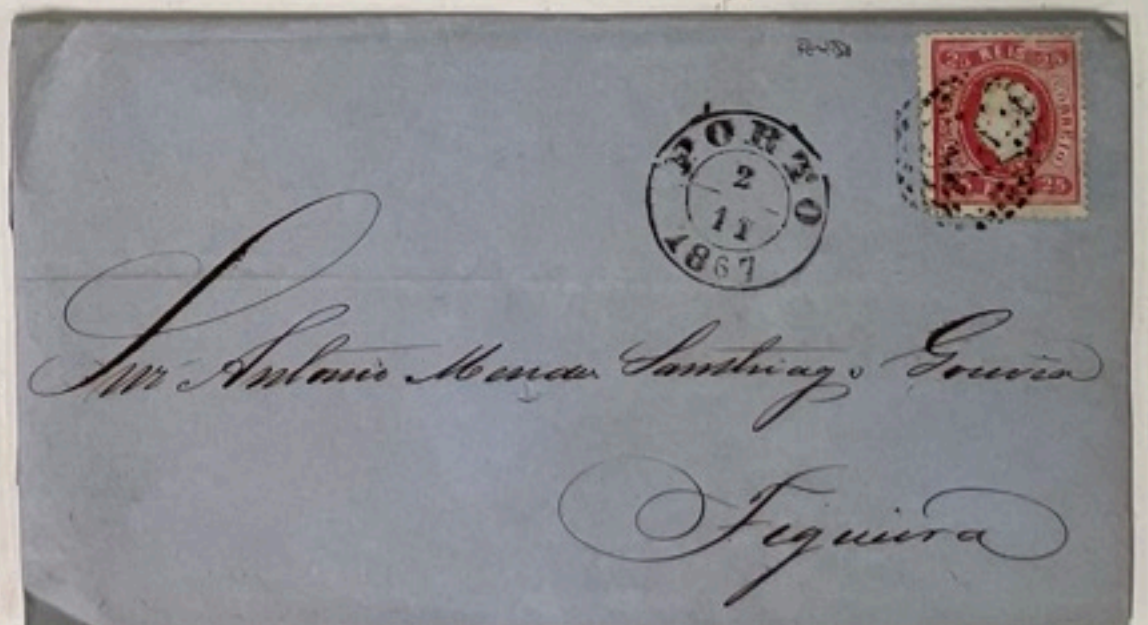 25 REIS 25
CORREIO
25
PORTO
2
11
1867
Snr Antonio Mendes Santhiago Gouvêa
Figueira